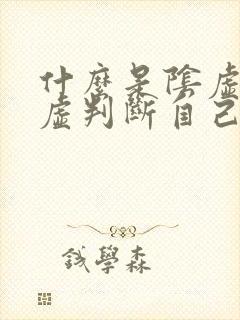 什麼是陰虛
虛判斷自己
錢學森